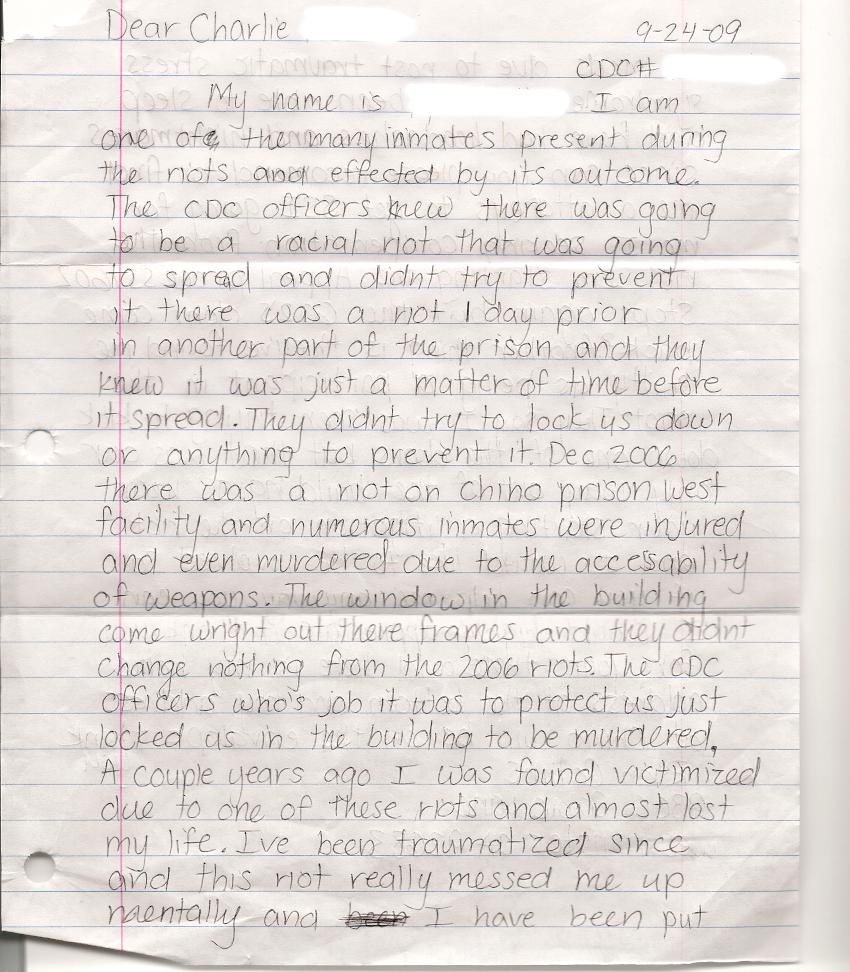 Dear Charlie 9-24-09
CDC#
My name is I am
one of the many inmates present during
the riots and effected by its outcome.
The CDC officers knew there was going
to be a racial riot that was going
to spread and didnt try to prevent
it there was a riot 1 day prior
in another part of the prison and they
knew it was just a matter of time before
it spread. They didnt try to lock us down
or anything to prevent it. Dec 2006
there was a riot on Chino prison West
facility and numerous inmates were injured
and even murdered due to the accessability
of weapons. The window in the building
come wright out there frames and they didnt
change nothing from the 2006 riots. The CDC
officers who's job it was to protect us just
locked us in the building to be murdered,
A couple years ago I was found victimized
due to one of these riots and almost lost
my life. Ive been traumatized since
and this riot really messed me up
mentally and been I have been put